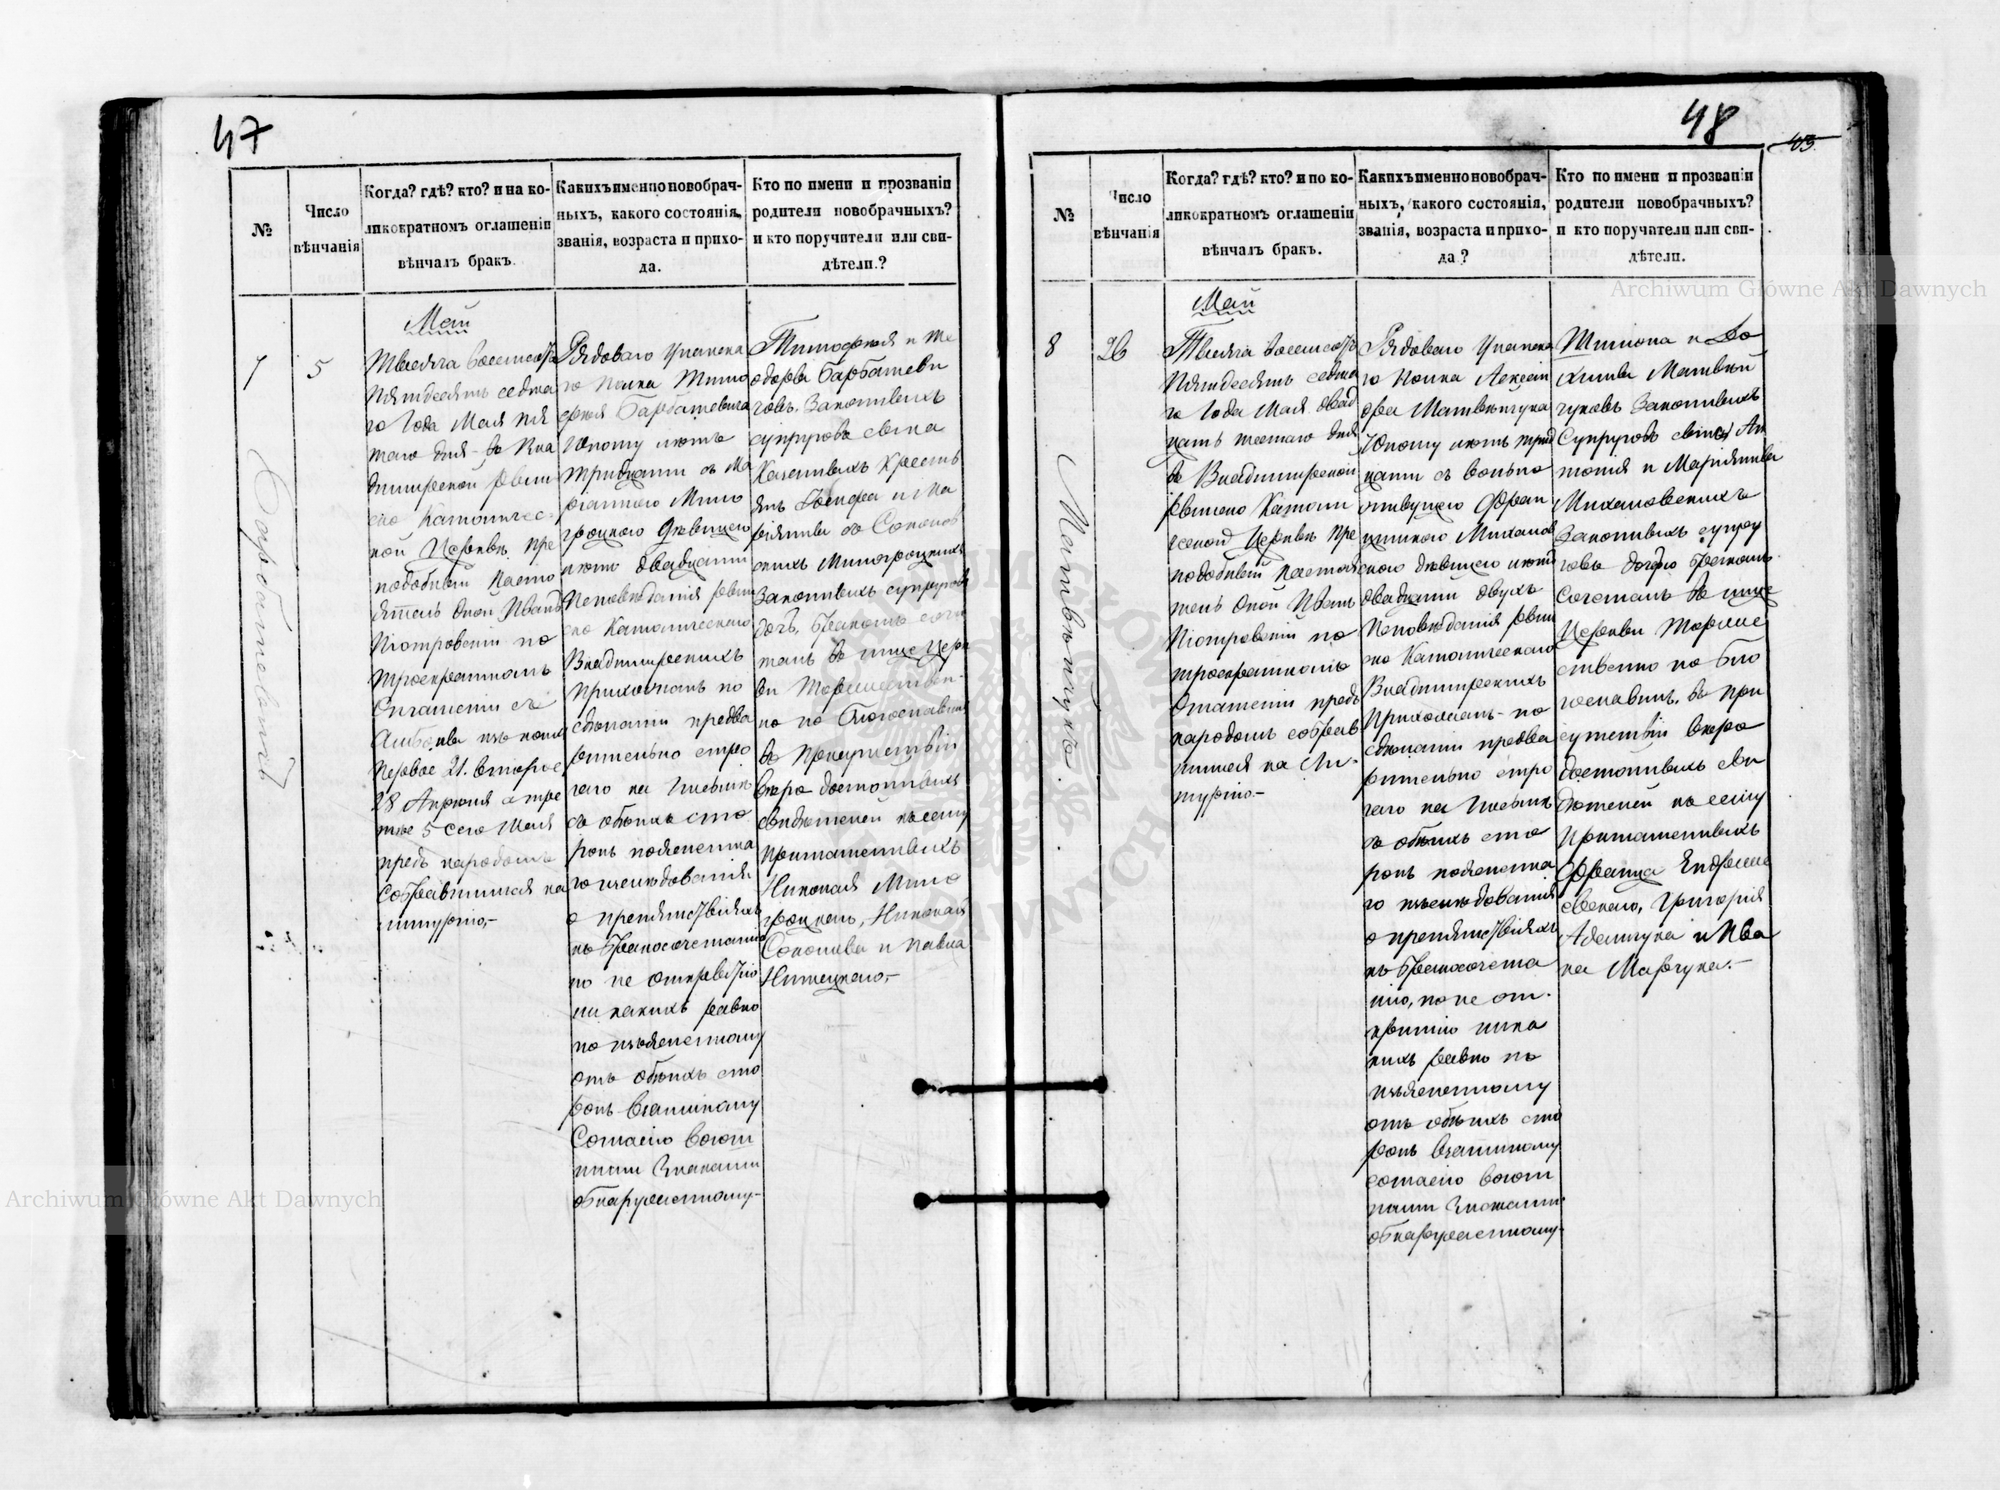 47
№
Число
вѣнчанія
Когда? гдѣ? кто? и на ко-
ликократномъ оглашеніи
вѣнчалъ бракъ.
Какихъ именно новобрач-
ныхъ, какого состоянія,
званія, возраста и прихо-
да.
Кто по имени и прозванію
родители новобрачныхъ?
и кто поручители или сви-
дѣтели.?
7
5
Май
Тысяча восемсотъ
пятдесятъ седма
го Года Мая пя
таго дня - въ Вла
димирской Рим
ско Католичес-
кой Церквѣ Пре
подобный Насто
ятель оной Иванъ
Піотровскій по
троекратномъ
Оглашеніи съ
Амбоны изъ коихъ
первое 21. второе
28 Апрѣля а тре
тье 5 сего Мая
предъ народомъ
собравшимся на
литургію,-
Рядоваго Уланска
го полка Тимо
фея Барбашевича
Юношу лѣтъ
тридцати съ Ма
ріанною Мино
гроцкою Дѣвицею
лѣтъ двадцати
Исповѣданія Рим
ско Католическаго
Владимирскихъ
прихожанъ по
сдѣланіи предва
рительно стро
гаго на письмѣ
съ обѣихъ сто
ронъ полснима
го изслѣдованія
о препятствіяхъ
къ бракосочетанію
но не открытію
ни какихъ равно
по изъясненному
отъ обѣихъ сто
ронъ взаимному
согласію
знаками
обнаруженному-
Тимофея и Ѳе
одоры Барбашеви
човъ. Законныхъ
супруговъ сына
Казенныхъ Крестъ
янъ Іосифа и Ма
ріянны съ Соколов
скихъ Миногроцкихъ
законныхъ супруговъ
дочь, бракомъ соче
талъ въ лице Церк
ви Торжествен-
но по благославилъ
въ присутствіи
вѣро достойныхъ
свидѣтелей къ сему
приглашенныхъ
Николая Мино
гроцкаго, Николая
и Павла
Барбашевичъ
48
43
№
Число
вѣнчанія
Когда? гдѣ? кто? и по ко-
ликократномъ оглашеніи
вѣнчалъ бракъ.
Какихъ именно новобрач-
ныхъ, какого состоянія,
званія, возраста и прихо-
да?
Кто по имени и прозванію
родители новобрачныхъ?
и кто поручители или сви-
дѣтели.
8
26
Май
Тысяча восемсотъ
пятдесятъ седма
го Года Мая двад
цать шестаго дня
въ Владимирской
Римско Католи
ческой Церквѣ Пре
подобный Настоя
тель оной Иванъ
Піотровскій по
троекратномъ
Оглашеніи предъ
народомъ собрав
шимся на Ли-
тургію.-
Рядоваго Уланска
го полка Лексан
дра Матвѣйчука
Юношу лѣтъ трид
цати съ вольно
живущею Фран
цишкою Михалов
скою дѣвицею лѣтъ
двадцати двухъ
Исповѣданія Рим
ско Католическаго
Владимирскихъ
Прихожанъ - по
сдѣланіи предва
рительно стро
гаго на письмѣ
съ обѣихъ сто
ронъ полснима
го изслѣдованія
о препятствіяхъ
къ бракосочета
нію, но не от-
крытію ника
кихъ равно по
изъясненному
отъ обѣихъ сто
ронъ взаимному
согласію
знаками
обнаруженному-
Матвѣй
чуковъ Законныхъ
Супруговъ сына Ан
тонія и Маріянны
Михаловскихъ
Законныхъ супру
говъ дочерью бракомъ
Сочеталъ въ лице
Церкви Торжес
ственно по бла
гославилъ. въ при
сутствіи вѣро
достойныхъ сви
дѣтелей къ сему
приглашенныхъ
Франца Ендржие
евскаго, Григорія
Адамчука и Ива
на Марчука.-
Матвѣйчукъ.
Archiwum Główne Akt Dawnych
Archiwum Główne Akt Dawnych